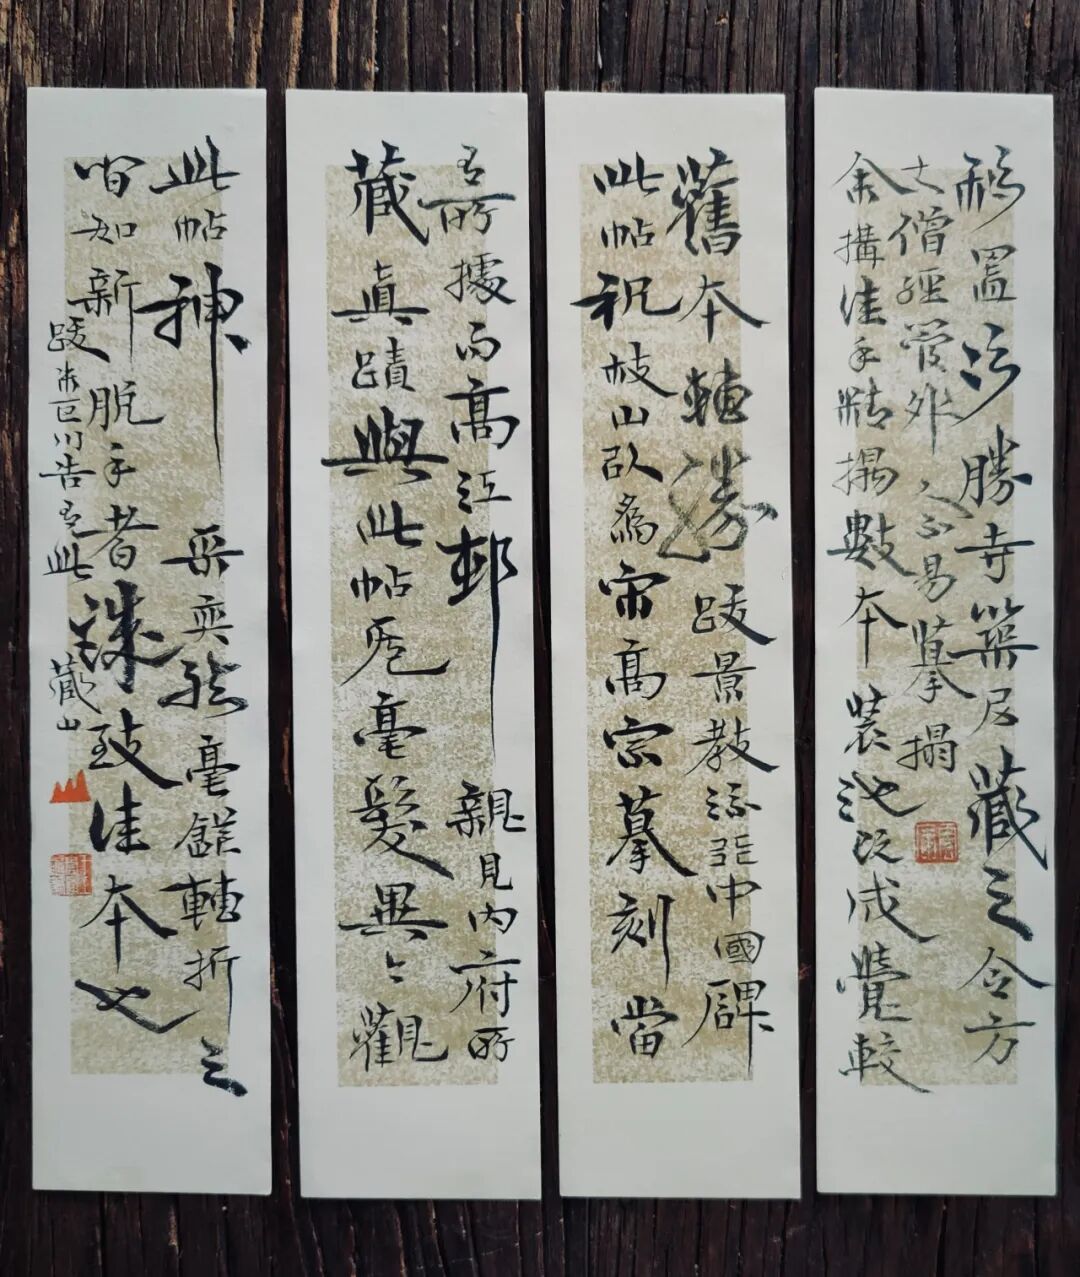 移置 勝寺築 藏之令方
丈僧經管外人不易摹搨
余搆佳手精搨數本裝池既成覺較
舊本轉勝 跋景教流行中國碑
此帖祝枝山以為宋高宗摹刻當
有所據而高江邨 親見内府所
藏真蹟與此帖无毫髮異今觀
此帖神采奕然毫鋩轉折之
間如新脫手者 致佳本也
跋朱巨川告 此 藏山